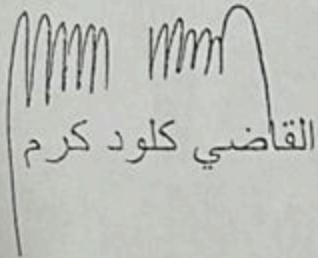 القاضي كلود كرم